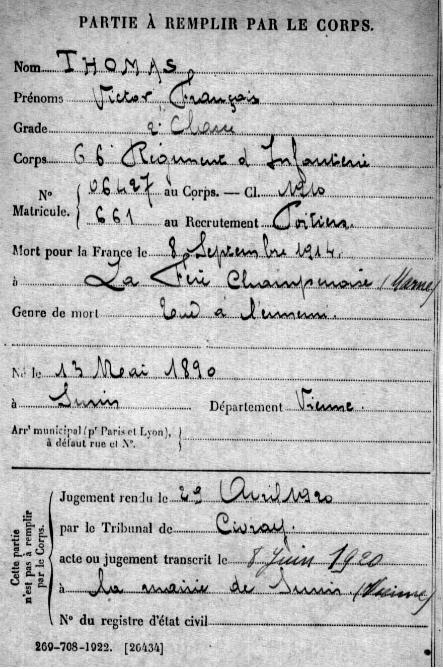 PARTIE À REMPLIR PAR LE CORPS.
Nom THOMAS
Prénoms Victor François
Grade 2e Classe
Corps 66e Régiment d'Infanterie
N° Matricule. { 06427 au Corps. — Cl. 1910
661 au Recrutement Poitiers
Mort pour la France le 8 Septembre 1914.
à La Fère Champenoise (Marne)
Genre de mort Tué à l'ennemi.
Né le 13 Mai 1890
à Département Vienne.
Arrt municipal (pr Paris et Lyon), à défaut rue et N°. }
Cette partie n'est pas à remplir par le Corps.
Jugement rendu le 29 Avril 1920
par le Tribunal de Civray.
acte ou jugement transcrit le 8 Juin 1920
à la mairie de (Vienne)
N° du registre d'état civil
269-708-1922. [26434]